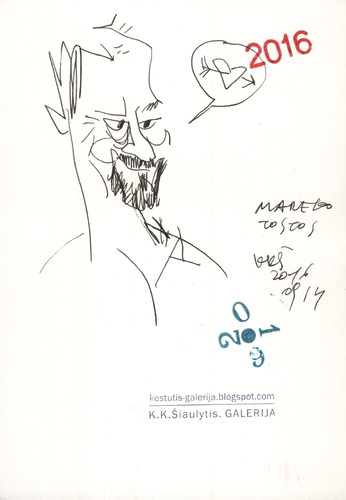 2016
MARELLO
TOSTOS
KKŠ
2016
09/14
2019
kestutis-galerija.blogspot.com
K.K.Šiaulytis. GALERIJA